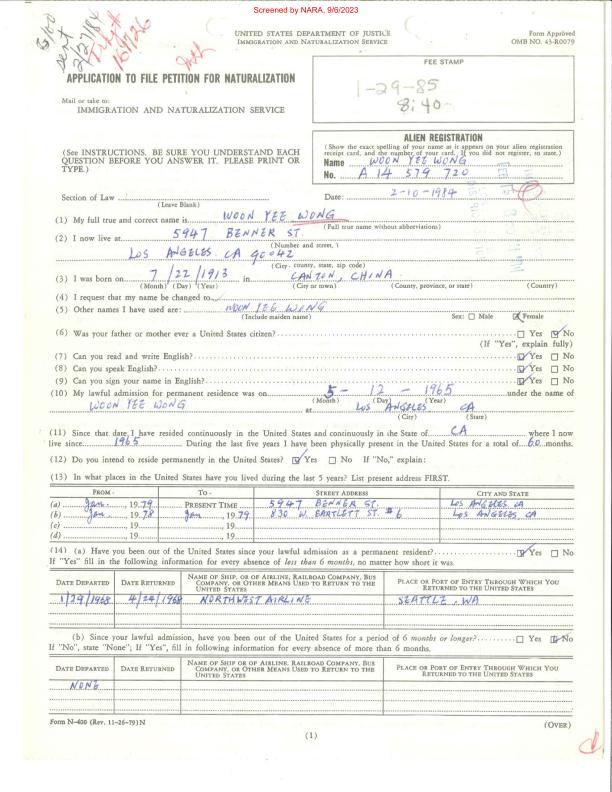 Screened by NARA, 9/6/2023
UNITED STATES DEPARTMENT OF JUSTICE
IMMIGRATION AND NATURALIZATION SERVICE
Form Approved
OMB NO. 43-R0079
sent
2/27/84
APPLICATION TO FILE PETITION FOR NATURALIZATION
FEE STAMP
1-29-85
8:40-
Mail or take to:
IMMIGRATION AND NATURALIZATION SERVICE
(See INSTRUCTIONS. BE SURE YOU UNDERSTAND EACH
QUESTION BEFORE YOU ANSWER IT. PLEASE PRINT OR
TYPE.)
ALIEN REGISTRATION
(Show the exact spelling of your name as it appears on your alien registration
receipt card, and the number of your card. If you did not register, so state.)
Name WOON YEE WONG
No. A 14 579 720
Section of Law
(Leave Blank)
Date: 2-10-1984
(1) My full true and correct name is WOON YEE WONG
(Full true name without abbreviations)
(2) I now live at 5947 BENNER ST.
(Number and street,)
LOS ANGELES CA 90042
(City, county, state, zip code)
(3) I was born on 7/22/1913 in CANTON, CHINA
(Month) (Day) (Year) (City or town) (County, province, or state) (Country)
(4) I request that my name be changed to
(5) Other names I have used are: WOON YEE WONG
(Include maiden name) Sex: Male Female
(6) Was your father or mother ever a United States citizen? Yes No
(If "Yes", explain fully)
(7) Can you read and write English? Yes No
(8) Can you speak English? Yes No
(9) Can you sign your name in English? Yes No
(10) My lawful admission for permanent residence was on 5- 12 - 1965 under the name of
(Month) (Day) (Year)
WOON YEE WONG at LOS ANGELES CA
(City) (State)
(11) Since that date I have resided continuously in the United States and continuously in the State of CA where I now
live since 1965. During the last five years I have been physically present in the United States for a total of 60 months.
(12) Do you intend to reside permanently in the United States? Yes No If "No," explain:
(13) In what places in the United States have you lived during the last 5 years? List present address FIRST.
FROM - TO - STREET ADDRESS CITY AND STATE
(a) Jan., 19 79 PRESENT TIME 5947 BENNER ST. LOS ANGELES CA
(b) Jan., 19 78 Jan, 19 79 830 W. BARTLETT ST. #6 LOS ANGELES, CA
(c) , 19 , 19
(d) , 19 , 19
(14) (a) Have you been out of the United States since your lawful admission as a permanent resident? Yes No
If "Yes" fill in the following information for every absence of less than 6 months, no matter how short it was.
DATE DEPARTED DATE RETURNED NAME OF SHIP, OR OF AIRLINE, RAILROAD COMPANY, BUS COMPANY, OR OTHER MEANS USED TO RETURN TO THE UNITED STATES PLACE OR PORT OF ENTRY THROUGH WHICH YOU RETURNED TO THE UNITED STATES
1/29/1968 4/24/1968 NORTHWEST AIRLINE SEATTLE, WA
(b) Since your lawful admission, have you been out of the United States for a period of 6 months or longer? Yes No
If "No", state "None"; If "Yes", fill in following information for every absence of more than 6 months.
DATE DEPARTED DATE RETURNED NAME OF SHIP OR OF AIRLINE, RAILROAD COMPANY, BUS COMPANY, OR OTHER MEANS USED TO RETURN TO THE UNITED STATES PLACE OR PORT OF ENTRY THROUGH WHICH YOU RETURNED TO THE UNITED STATES
NONE
Form N-400 (Rev. 11-26-79)N
(OVER)
(1)